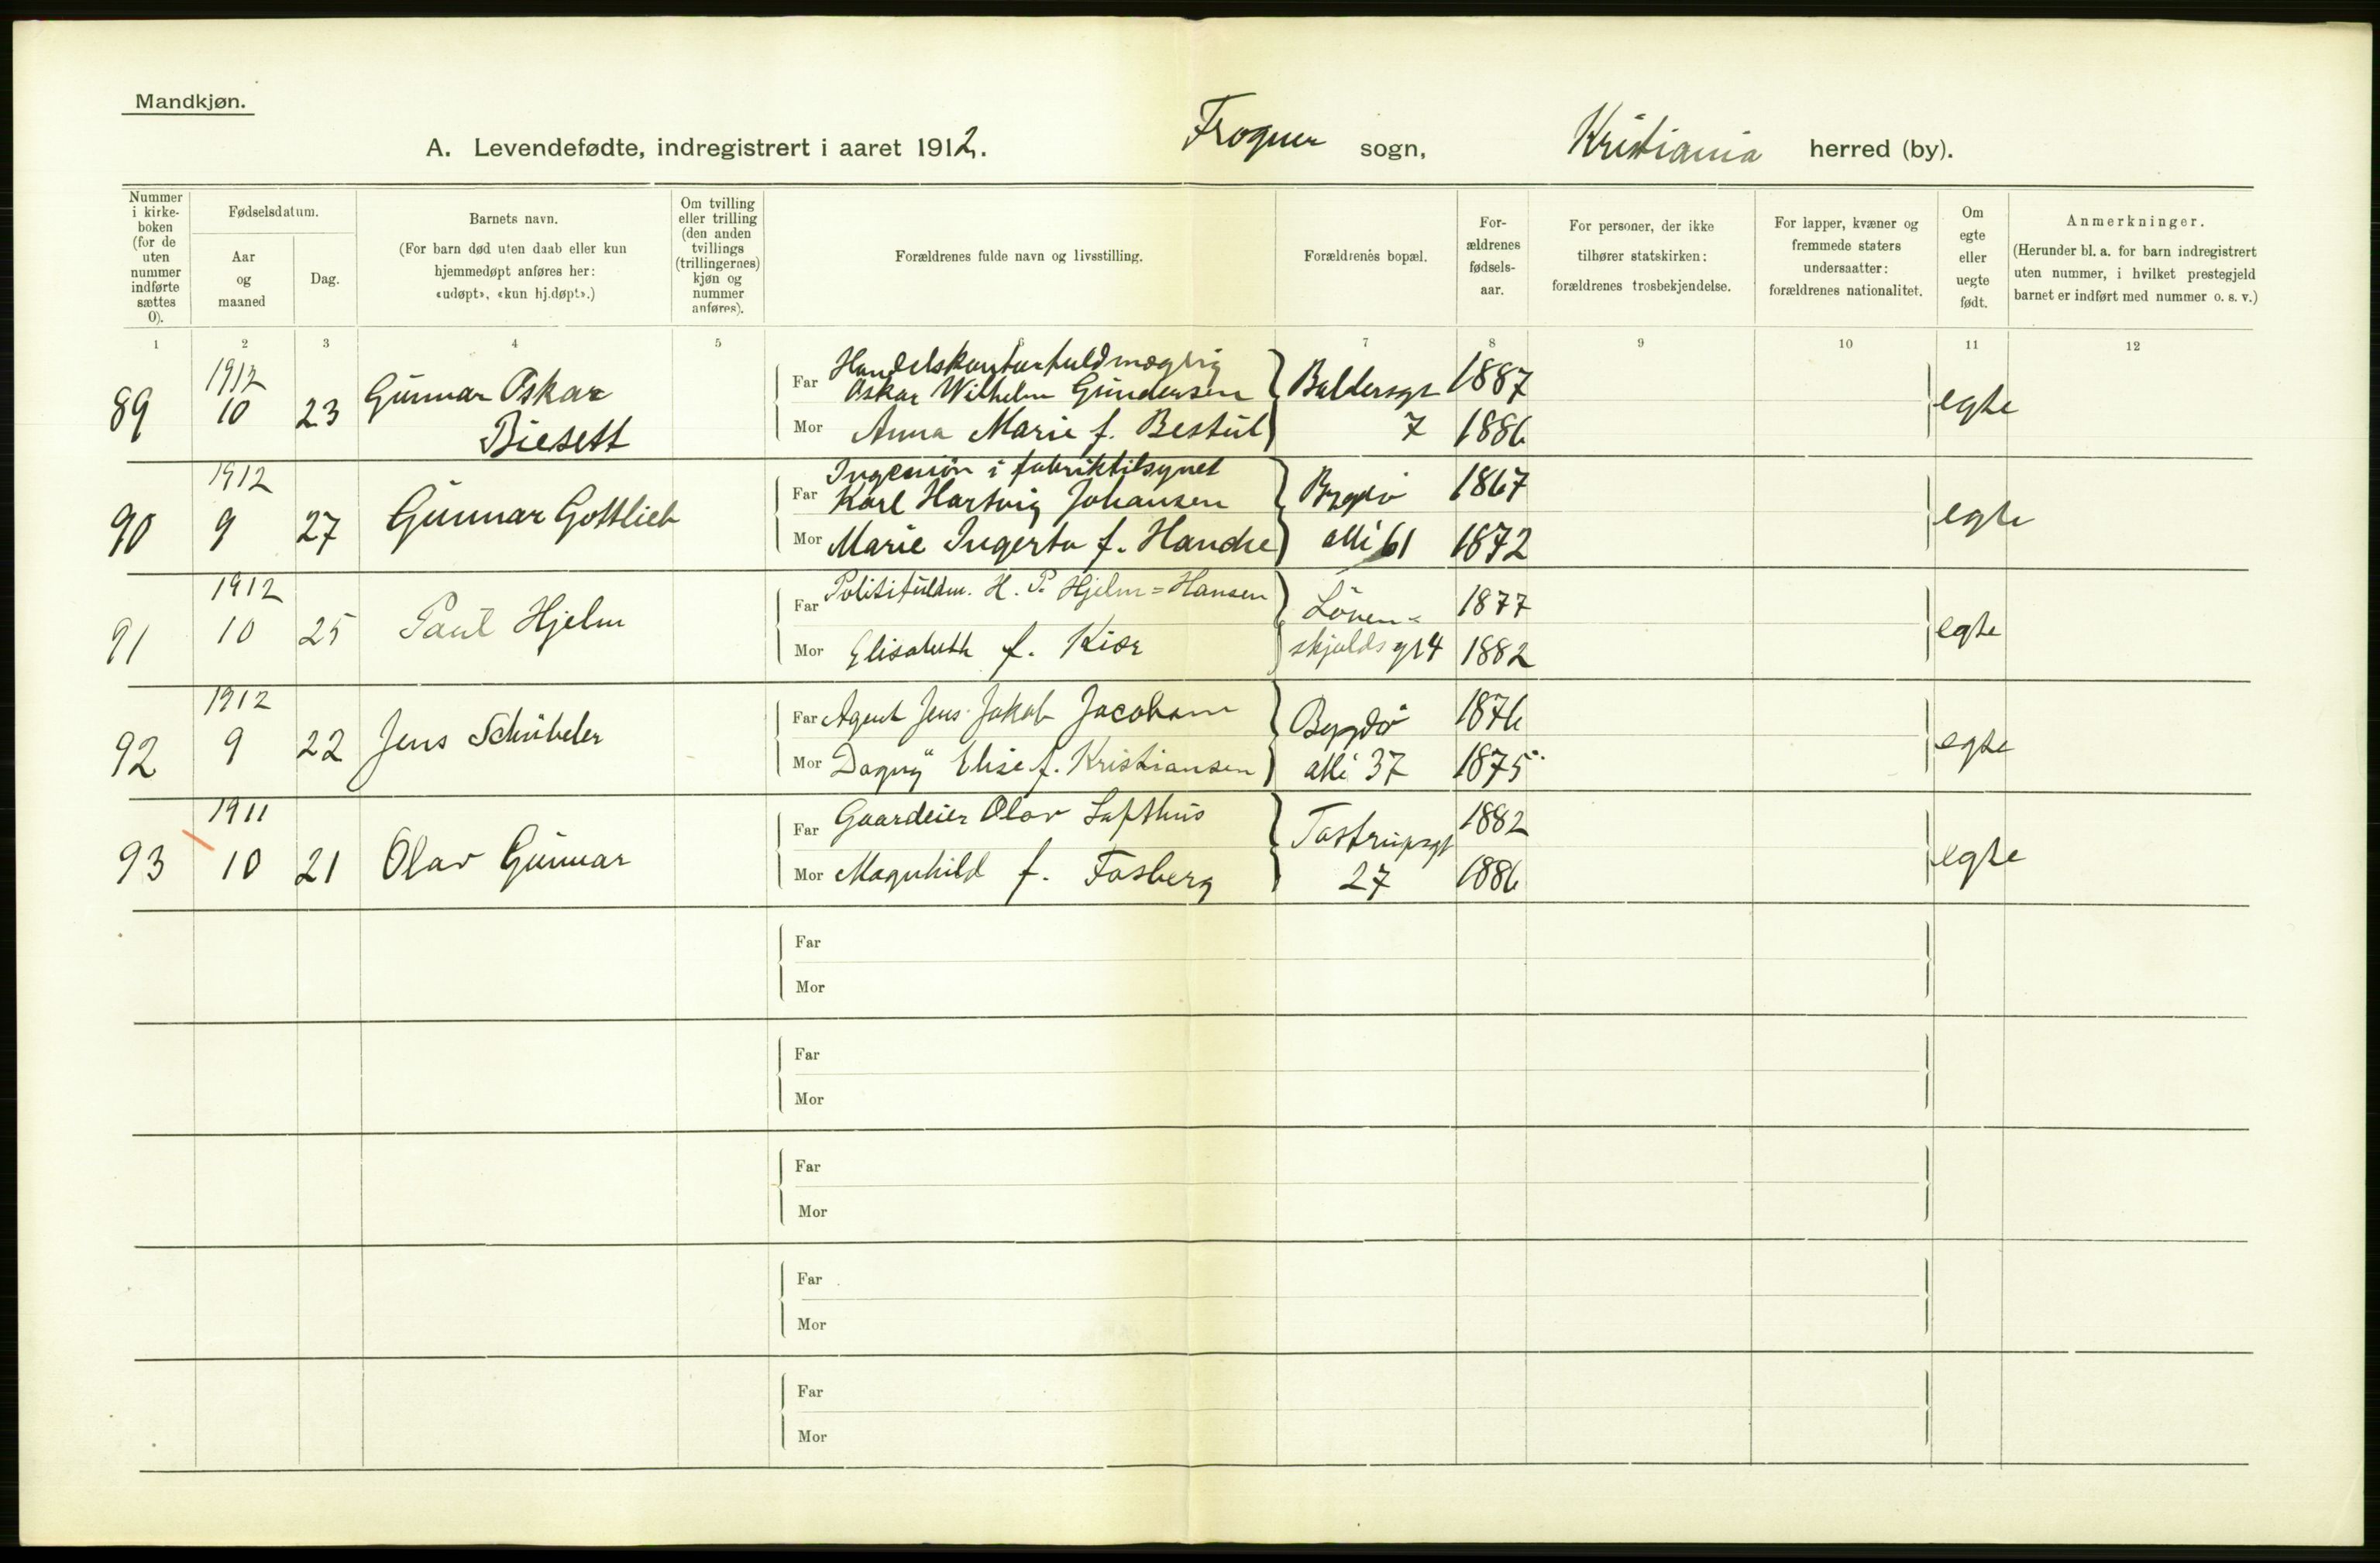 Mandkjøn.
A. Levendefødte, indregistrert i aaret 1912. Frogner sogn, Kristiania herred (by).
Nummer i kirke-boken (for de uten nummer indførte sættes 0).
Fødselsdatum.
Aar og maaned
Dag.
Barnets navn.
(For barn død uten daab eller kun hjemmedøpt anføres her: «udøpt», «kun hj.døpt».)
Om tvilling eller trilling (den anden tvillings (trillingernes) kjøn og nummer anføres).
Forældrenes fulde navn og livsstilling.
Forældrenes bopæl.
For-ældrenes fødsels-aar.
For personer, der ikke tilhører statskirken: forældrenes trosbekjendelse.
For lapper, kvæner og fremmede staters undersaatter: forældrenes nationalitet.
Om egte eller uegte født.
Anmerkninger.
(Herunder bl. a. for barn indregistrert uten nummer, i hvilket prestegjeld barnet er indført med nummer o. s. v.)
1 2 3 4 5 7 8 9 10 11 12
89 1912 10 23 Gunnar Oskar Biesett
Handelskontorfuldmægtig
Far Oskar Wilhelm Gundersen Baldersgt 1887
Mor Anna Marie f. Bestul 7 1886 egte
90 1912 9 27 Gunnar Gottlieb
Ingeniør i fabriktilsynet
Far Karl Hartvig Johansen Bygdø 1867
Mor Marie Ingerta f. Hande alle 61 1872 egte
91 1912 10 25 Paul Hjelm
Far Politifuldm. H. P. Hjelm=Hansen Löven- 1877
Mor Elisabeth f. Kiær skjoldsgt 4 1882 egte
92 1912 9 22 Jens Schübeler
Far Agent Jens Jakob Jacobsen Bygdø 1876
Mor Dagny Elise f. Kristiansen alle 37 1875 egte
93 1911 10 21 Olav Gunnar
Far Gaardeier Olav Lofthus Tostrupsgt 1882
Mor Magnhild f. Fosberg 27 1886 egte
Far
Mor
Far
Mor
Far
Mor
Far
Mor
Far
Mor